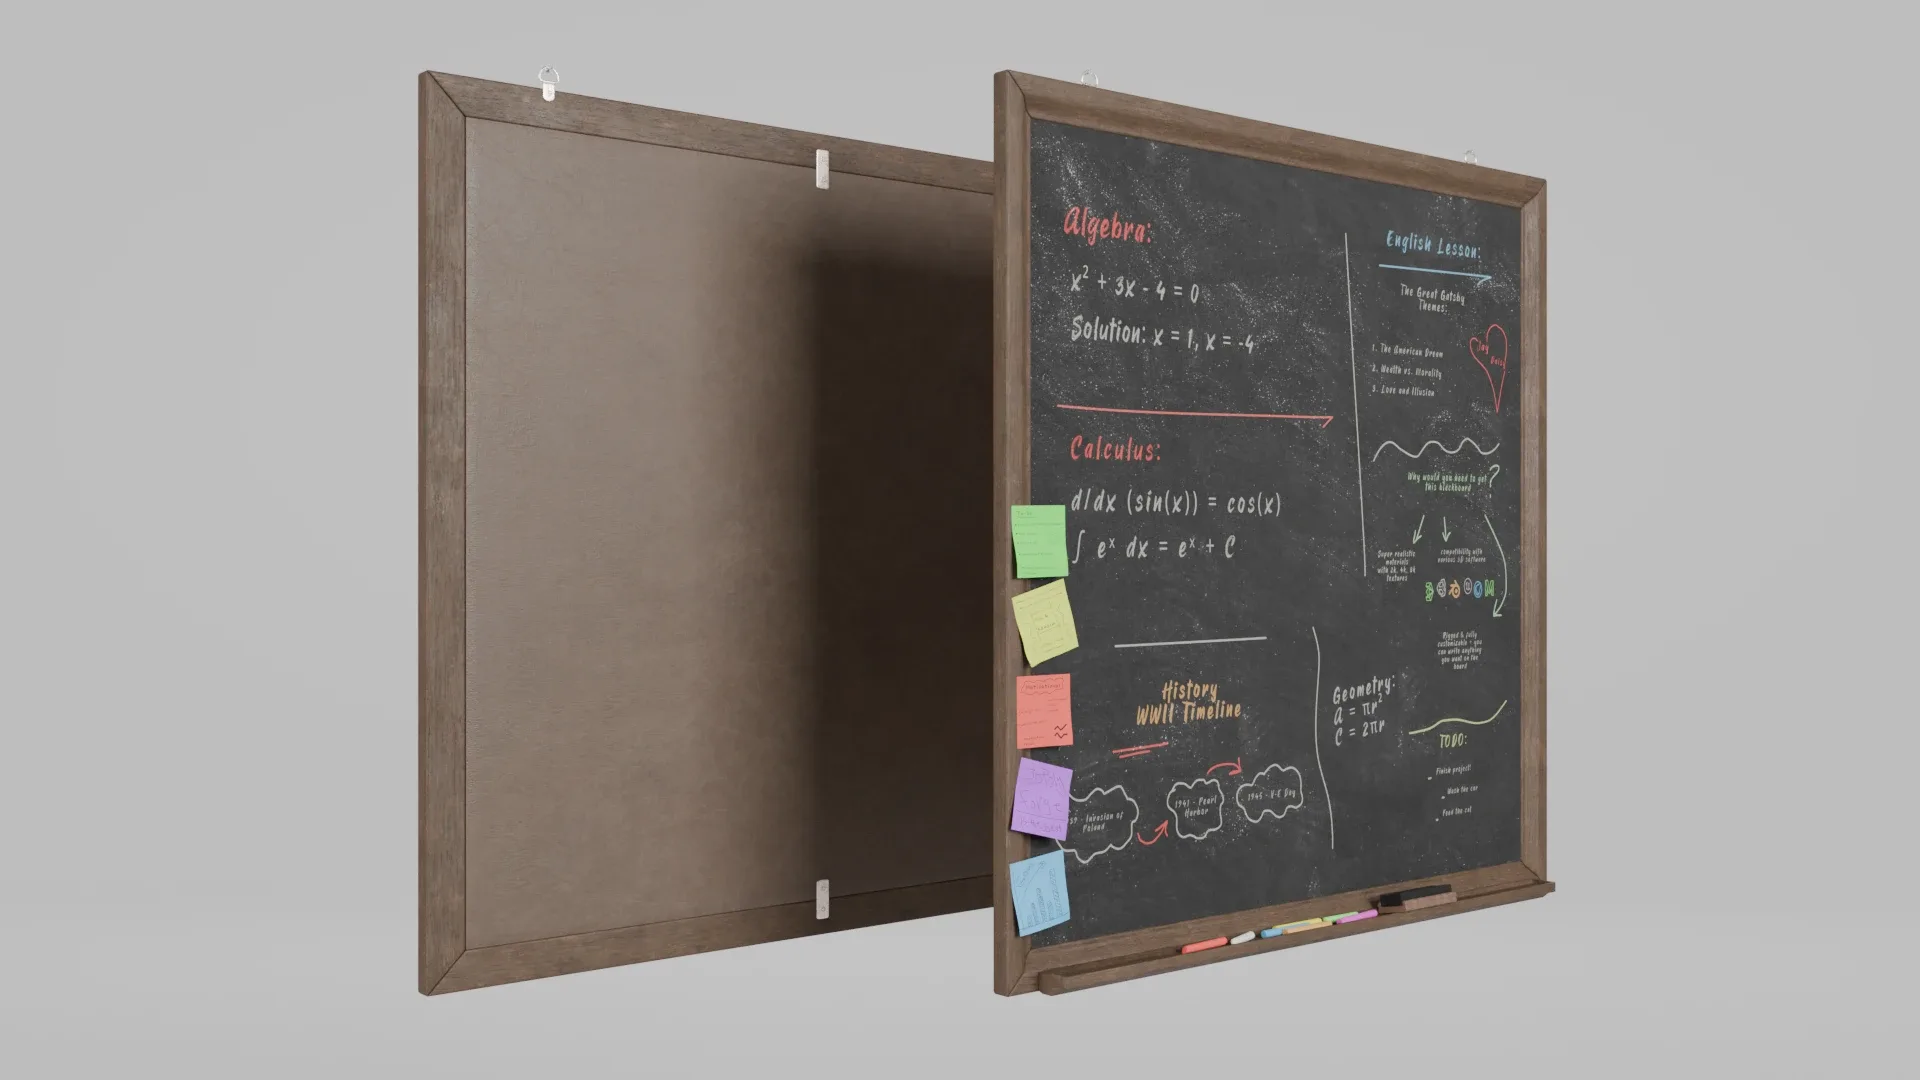 Algebra:
x² + 3x - 4 = 0
Solution: x = 1, x = -4
Calculus:
d/dx (sin(x)) = cos(x)
∫ eˣ dx = eˣ + C
History
WWII Timeline
Invasion of
Poland
1941 - Pearl
Harbor
1945 - V-E Day
Geometry:
A = πr²
C = 2πr
English Lesson:
The Great Gatsby
Themes:
1. The American Dream
2. Wealth vs. Morality
3. Love and Illusion
Jay
Why would you need to get
this blackboard
?
Super realistic
materials
with 2k, 4k, 8k
textures
compatibility with
various 3D software
Rigged & fully
customizable - you
can write anything
you want on the
board
TODO:
- Finish project!
- Wash the car
- Feed the cat